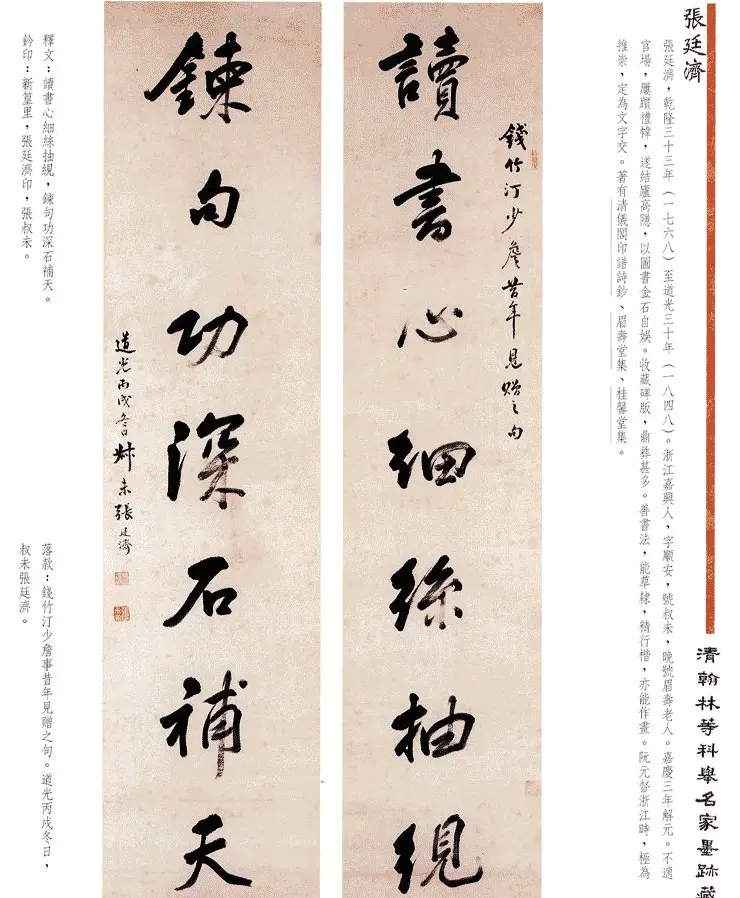 清翰林等科舉名家墨跡藏
張廷濟
張廷濟，乾隆三十三年（一七六八）至道光三十年（一八四八）。浙江嘉興人，字順安，號叔未，晚號眉壽老人。嘉慶三年解元。不適
官場，屢躓禮幃，遂結廬高隱，以圖書金石自娛。收藏碑版，鼎彝甚多。善書法，能草隸，精行楷，亦能作畫。阮元督浙江時，極為
推崇，定為文字交。著有清儀閣印譜詩鈔、眉壽堂集、桂馨堂集。
錢竹汀少詹昔年見贈之句
讀書心細絲抽緄
鍊句功深石補天
道光丙戌冬日叔未張廷濟
釋文：讀書心細絲抽緄，鍊句功深石補天。
鈐印：新篁里，張廷濟印，張叔未。
落款：錢竹汀少詹事昔年見贈之句。道光丙戌冬日，
叔未張廷濟。